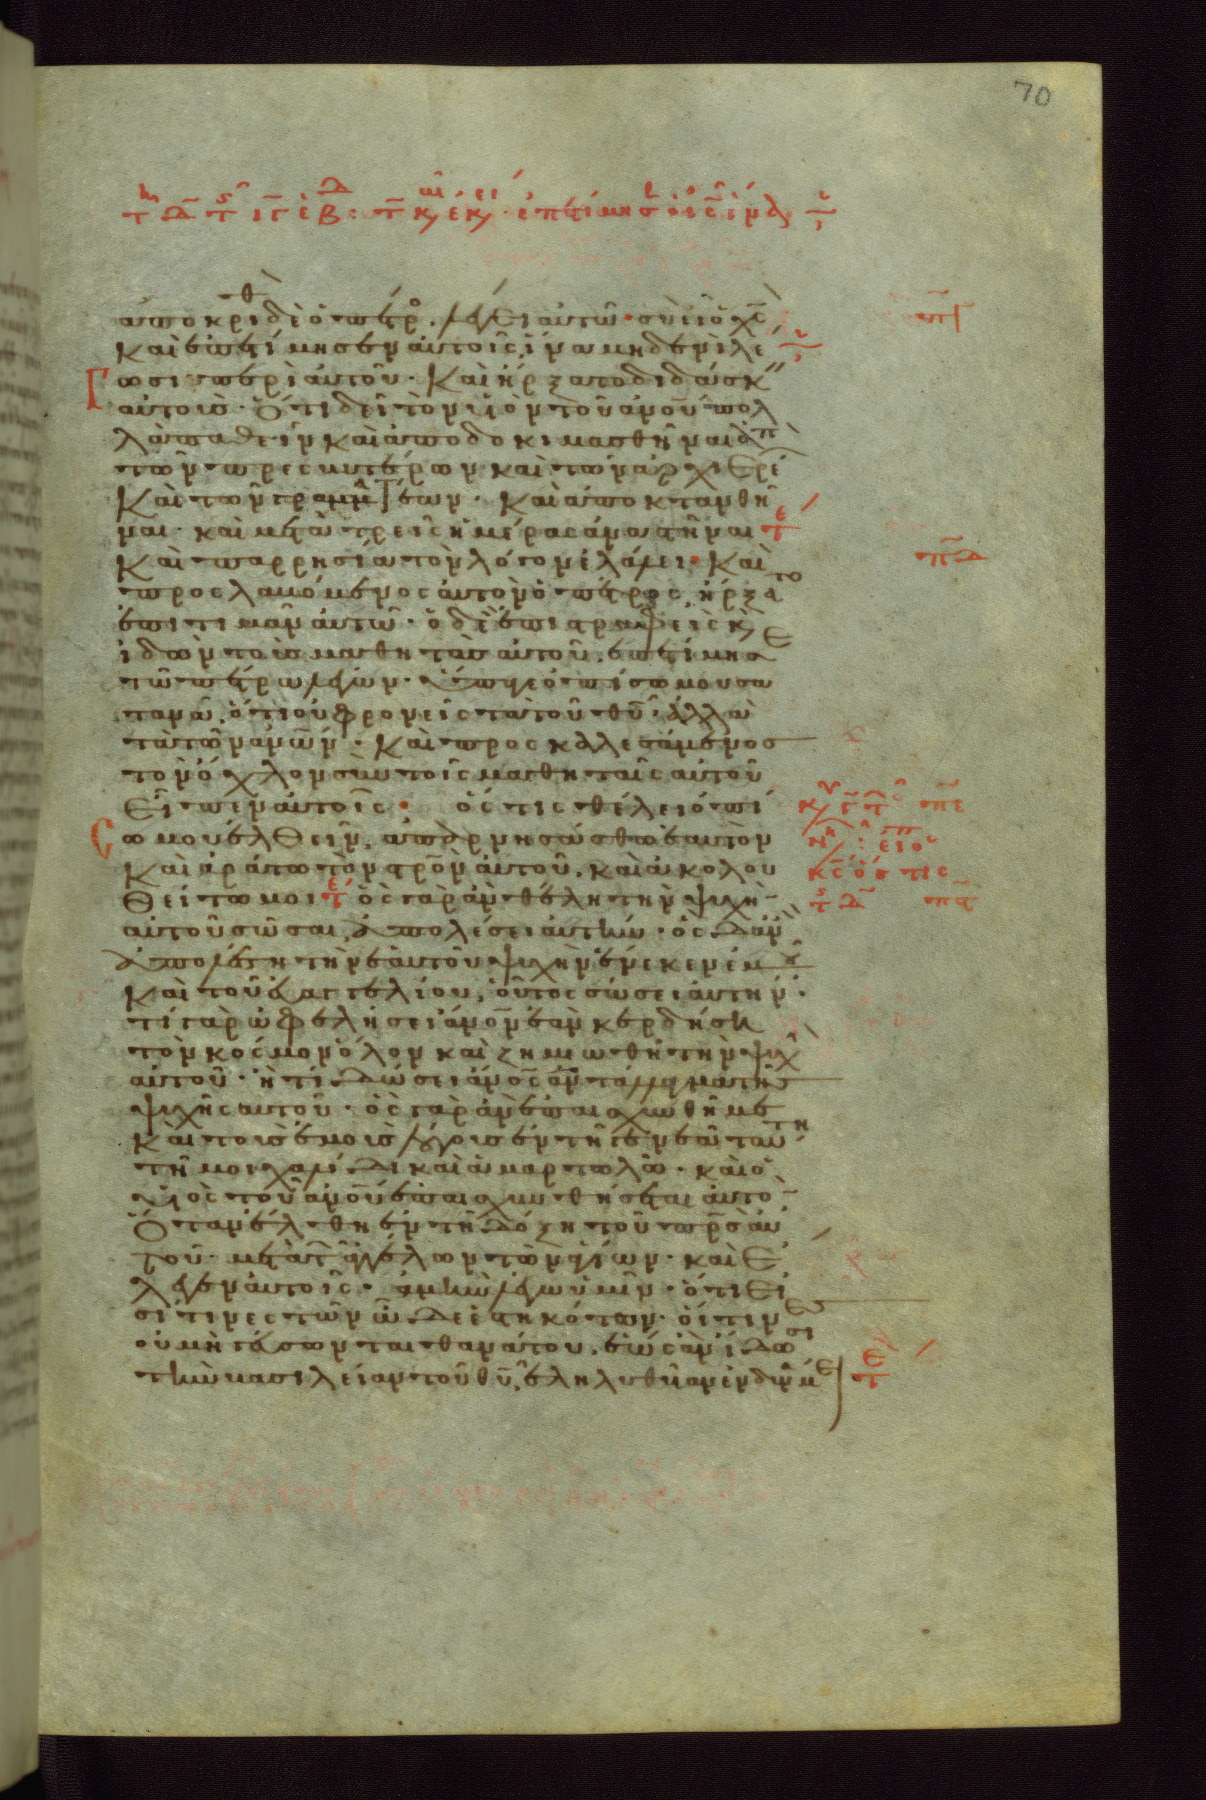 70
ἀποκριθ δὲ ὁ πετρο λέγει αὐτῶ σὺ εἶ ὁ χς
καὶ ἐπετίμησεν αὐτοῖς ἵνα μηδενὶ λέ
ωσι περὶ αὐτοῦ · Καὶ ἤρξατο διδάσκ
αὐτοὺς · ὅτι δεῖ τὸν υἱὸν τοῦ ἀνου πολ
λὰ παθεῖν καὶ ἀποδοκιμασθῆναι ἀπὸ
τῶν πρεσβυτέρων καὶ τῶν ἀρχιερέ
Καὶ τῶν γραμματέων · Καὶ ἀποκτανθῆ
ναι · καὶ μετὰ τρεῖς ἡμέρας ἀναστῆναι
Καὶ παρρησία τὸν λόγον ἐλάλει · Καὶ
προσλαβόμενος αὐτὸν ὁ πέτρος, ἤρξατο
ἐπιτιμᾶν αὐτῶ · ὁ δὲ ἐπιστραφεὶς κ
ἰδὼν τοὺς μαθητὰς αὐτοῦ, ἐπετίμησε
τῶ πέτρω λέγων · ὕπαγε ὀπίσω μου σα
τανᾶ, ὅτι οὐ φρονεῖς τὰ τοῦ θυ, ἀλλὰ
τὰ τῶν ανων · Καὶ προσκαλεσάμενος
τὸν ὄχλον σὺν τοῖς μαθηταῖς αὐτοῦ
εἶπεν αὐτοῖς · ὅστις θέλει ὀπί
ω μου ἐλθεῖν, ἀπαρνησάσθω ἑαυτὸν
Καὶ ἀράτω τὸν στρον αὐτοῦ, καὶ ἀκολου
θείτω μοι ὃς γὰρ ἂν θέλη τὴν ψυχὴ
αὐτοῦ σῶσαι, ἀπολέσει αὐτήν · ὃς δ ἂν
ἀπολέση τὴν ἑαυτοῦ ψυχὴν ἕνεκεν ἐμ
Καὶ τοῦ εὐαγγελίου, οὗτος σώσει αὐτήν ·
τί γὰρ ὠφελήσει ανον ἐὰν κερδήση
τὸν κόσμον ὅλον καὶ ζημιωθῆ τὴν ψυχ
αὐτοῦ · ἢ τί δώσει ανος ἀντάλλαγμα τῆς
ψυχῆς αὐτοῦ · ὃς γὰρ ἂν ἐπαισχυνθῆ με
καὶ τοὺς ἐμοὺς λόγους ἐν τῆ γενεᾶ ταύτη
τῆ μοιχαλίδι καὶ ἁμαρτωλῶ · καὶ ὁ
υἱὸς τοῦ ἀνου ἐπαισχυνθήσεται αὐτὸ
ὅταν ἔλθη ἐν τῆ δόξη τοῦ πρς αὐ
τοῦ · μετὰ τ ἀγγέλων τῶν ἁγίων · καὶ ἔ
λεγεν αὐτοῖς · ἀμὴν λέγω ὑμῖν · ὅτι εἰ
σί τινες τῶν ὧδε ἑστηκότων · οἵτινες
οὐ μὴ γεύσωνται θανάτου, ἕως ἂν ἴδωσι
τὴν βασιλείαν τοῦ θυ, ἐληλυθυῖαν ἐν δυνάμ